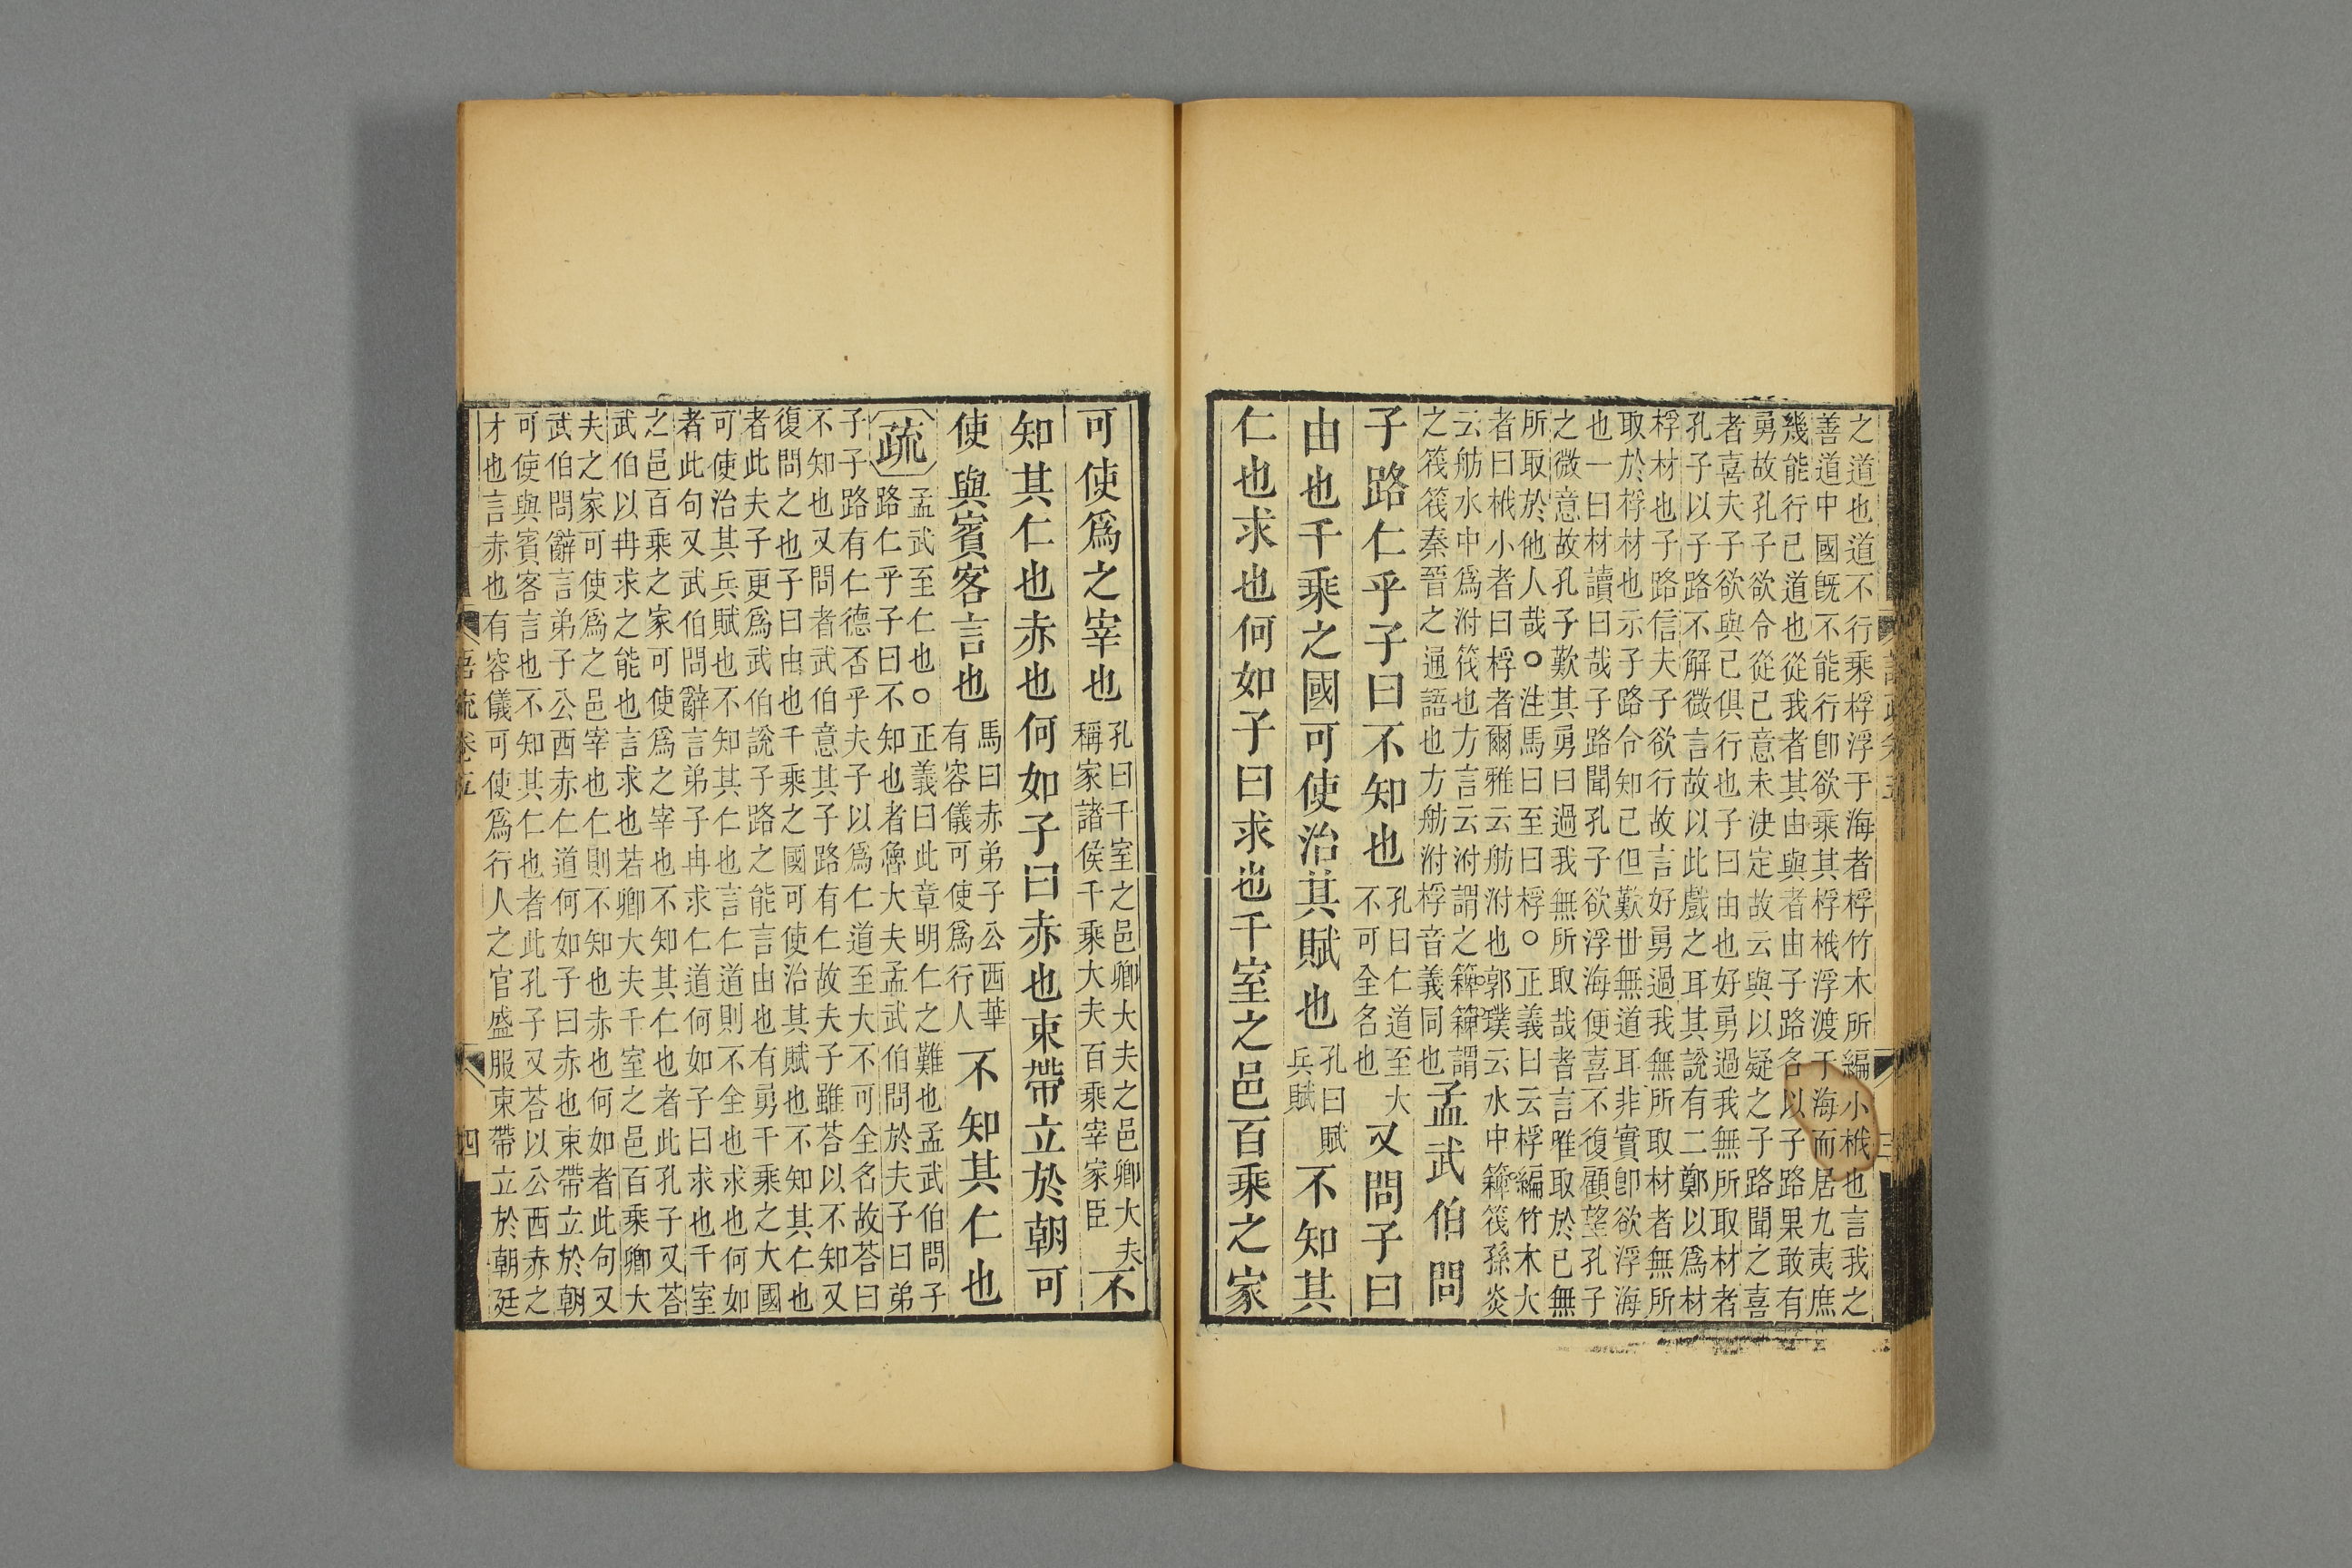 之道也道不行乘桴浮于海者桴竹木所編小栰也言我之
善道中國旣不能行卽欲乘其桴栰浮渡于海而居九夷庶
幾能行己道也從我者其由與者由子路名以子路果敢有
勇故孔子欲令從己意未決定故云與以疑之子路聞之喜
者喜夫子欲與己俱行也子曰由也好勇過我無所取材者
孔子以子路不解微言故以此戲之耳其說有二鄭以爲材
桴材也子路信夫子欲行故言好勇過我無所取材者無所
取於桴材也示子路令知己但歎世無道耳非實卽欲浮海
也一曰材讀曰哉子路聞孔子欲浮海便喜不復顧望孔子
之微意故孔子歎其勇曰過我無所取哉者言唯取於己無
所取於他人哉○注馬曰至曰桴○正義曰云桴編竹木大
者曰栰小者曰桴者爾雅云舫泭也郭璞云水中𥴖筏孫炎
云舫水中爲泭筏也方言云泭謂之𥴖𥴖謂
之筏筏秦晉之通語也方舫泭桴音義同也孟武伯問
子路仁乎子曰不知也孔曰仁道至大不可全名也又問子曰
由也千乘之國可使治其賦也孔曰賦兵賦不知其
仁也求也何如子曰求也千室之邑百乘之家
可使爲之宰也孔曰千室之邑卿大夫之邑卿大夫稱家諸侯千乘大夫百乘宰家臣不
知其仁也赤也何如子曰赤也束帶立於朝可
使與賓客言也馬曰赤弟子公西華有容儀可使爲行人不知其仁也
疏孟武至仁也○正義曰此章明仁之難也孟武伯問子
路仁乎子曰不知也者魯大夫孟武伯問於夫子曰弟
子子路有仁德否乎夫子以爲仁道至大不可全名故荅曰
不知也又問者武伯意其子路有仁故夫子雖荅以不知又
復問之也子曰由也千乘之國可使治其賦也不知其仁也
者此夫子更爲武伯說子路之能言由也有勇千乘之大國
可使治其兵賦也不知其仁也言仁道則不全也求也何如
者此句又武伯問辭言弟子冉求仁道何如子曰求也千室
之邑百乘之家可使爲之宰也不知其仁也者此孔子又荅
武伯以冉求之能也言求也若卿大夫千室之邑百乘卿大
夫之家可使爲之邑宰也仁則不知也赤也何如者此句又
武伯問辭言弟子公西赤仁道何如子曰赤也束帶立於朝
可使與賓客言也不知其仁也者此孔子又荅以公西赤之
才也言赤也有容儀可使爲行人之官盛服束帶立於朝廷
語疏卷五
四